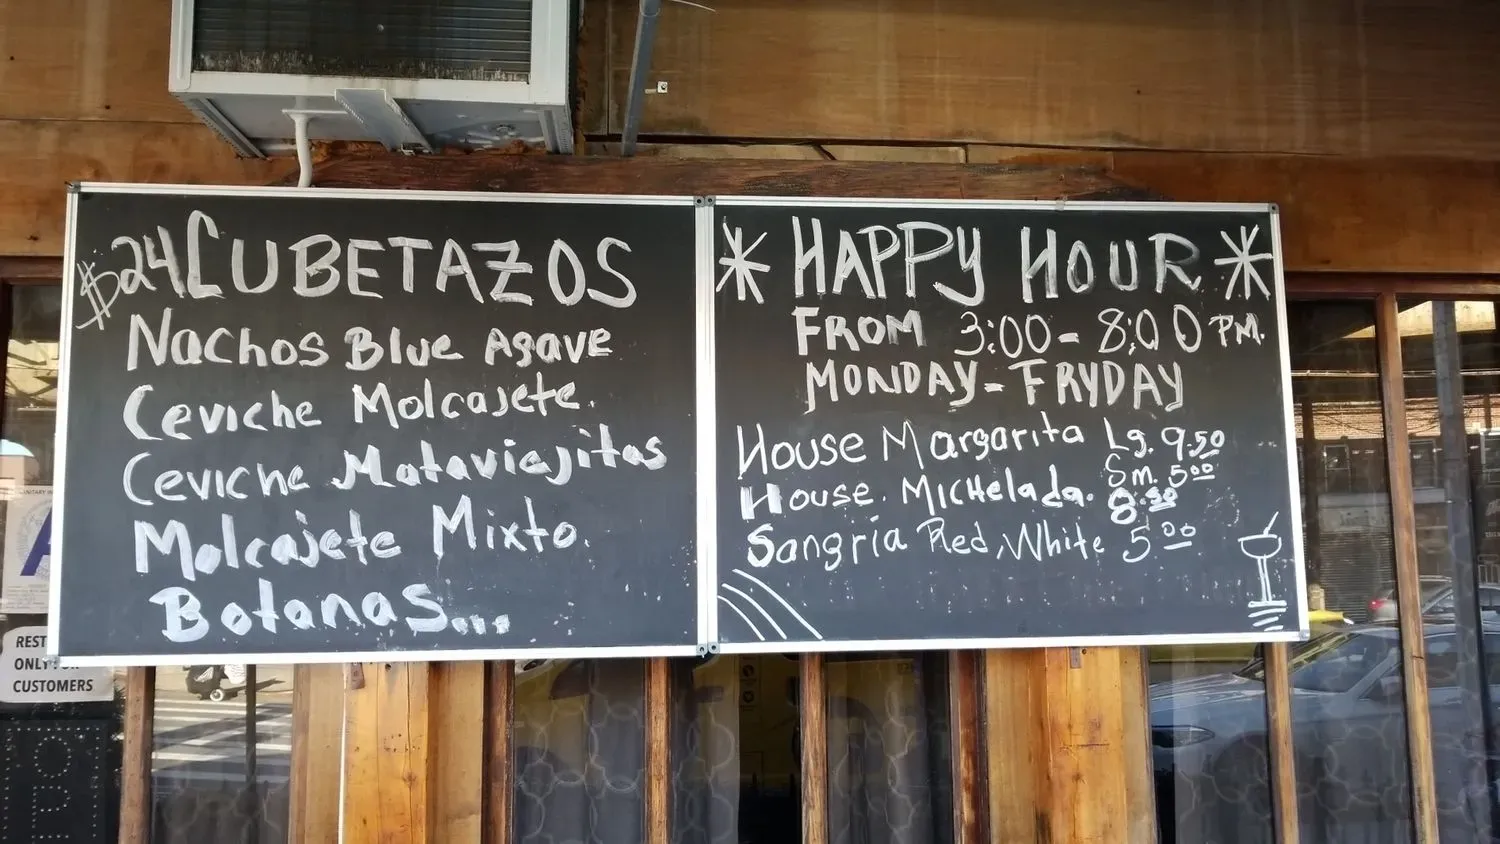 $24 CUBETAZOS
Nachos Blue Agave
Ceviche Molcajete.
Ceviche Mataviejitas
Molcajete Mixto.
Botanas...
* HAPPY HOUR *
FROM 3:00 - 8:00 PM.
MONDAY - FRYDAY
House Margarita Lg. 9.50
Sm. 5.00
House. Michelada. 8.50
Sangría Red, White 5.00
SANITARY
A
REST
ONLY FOR
CUSTOMERS